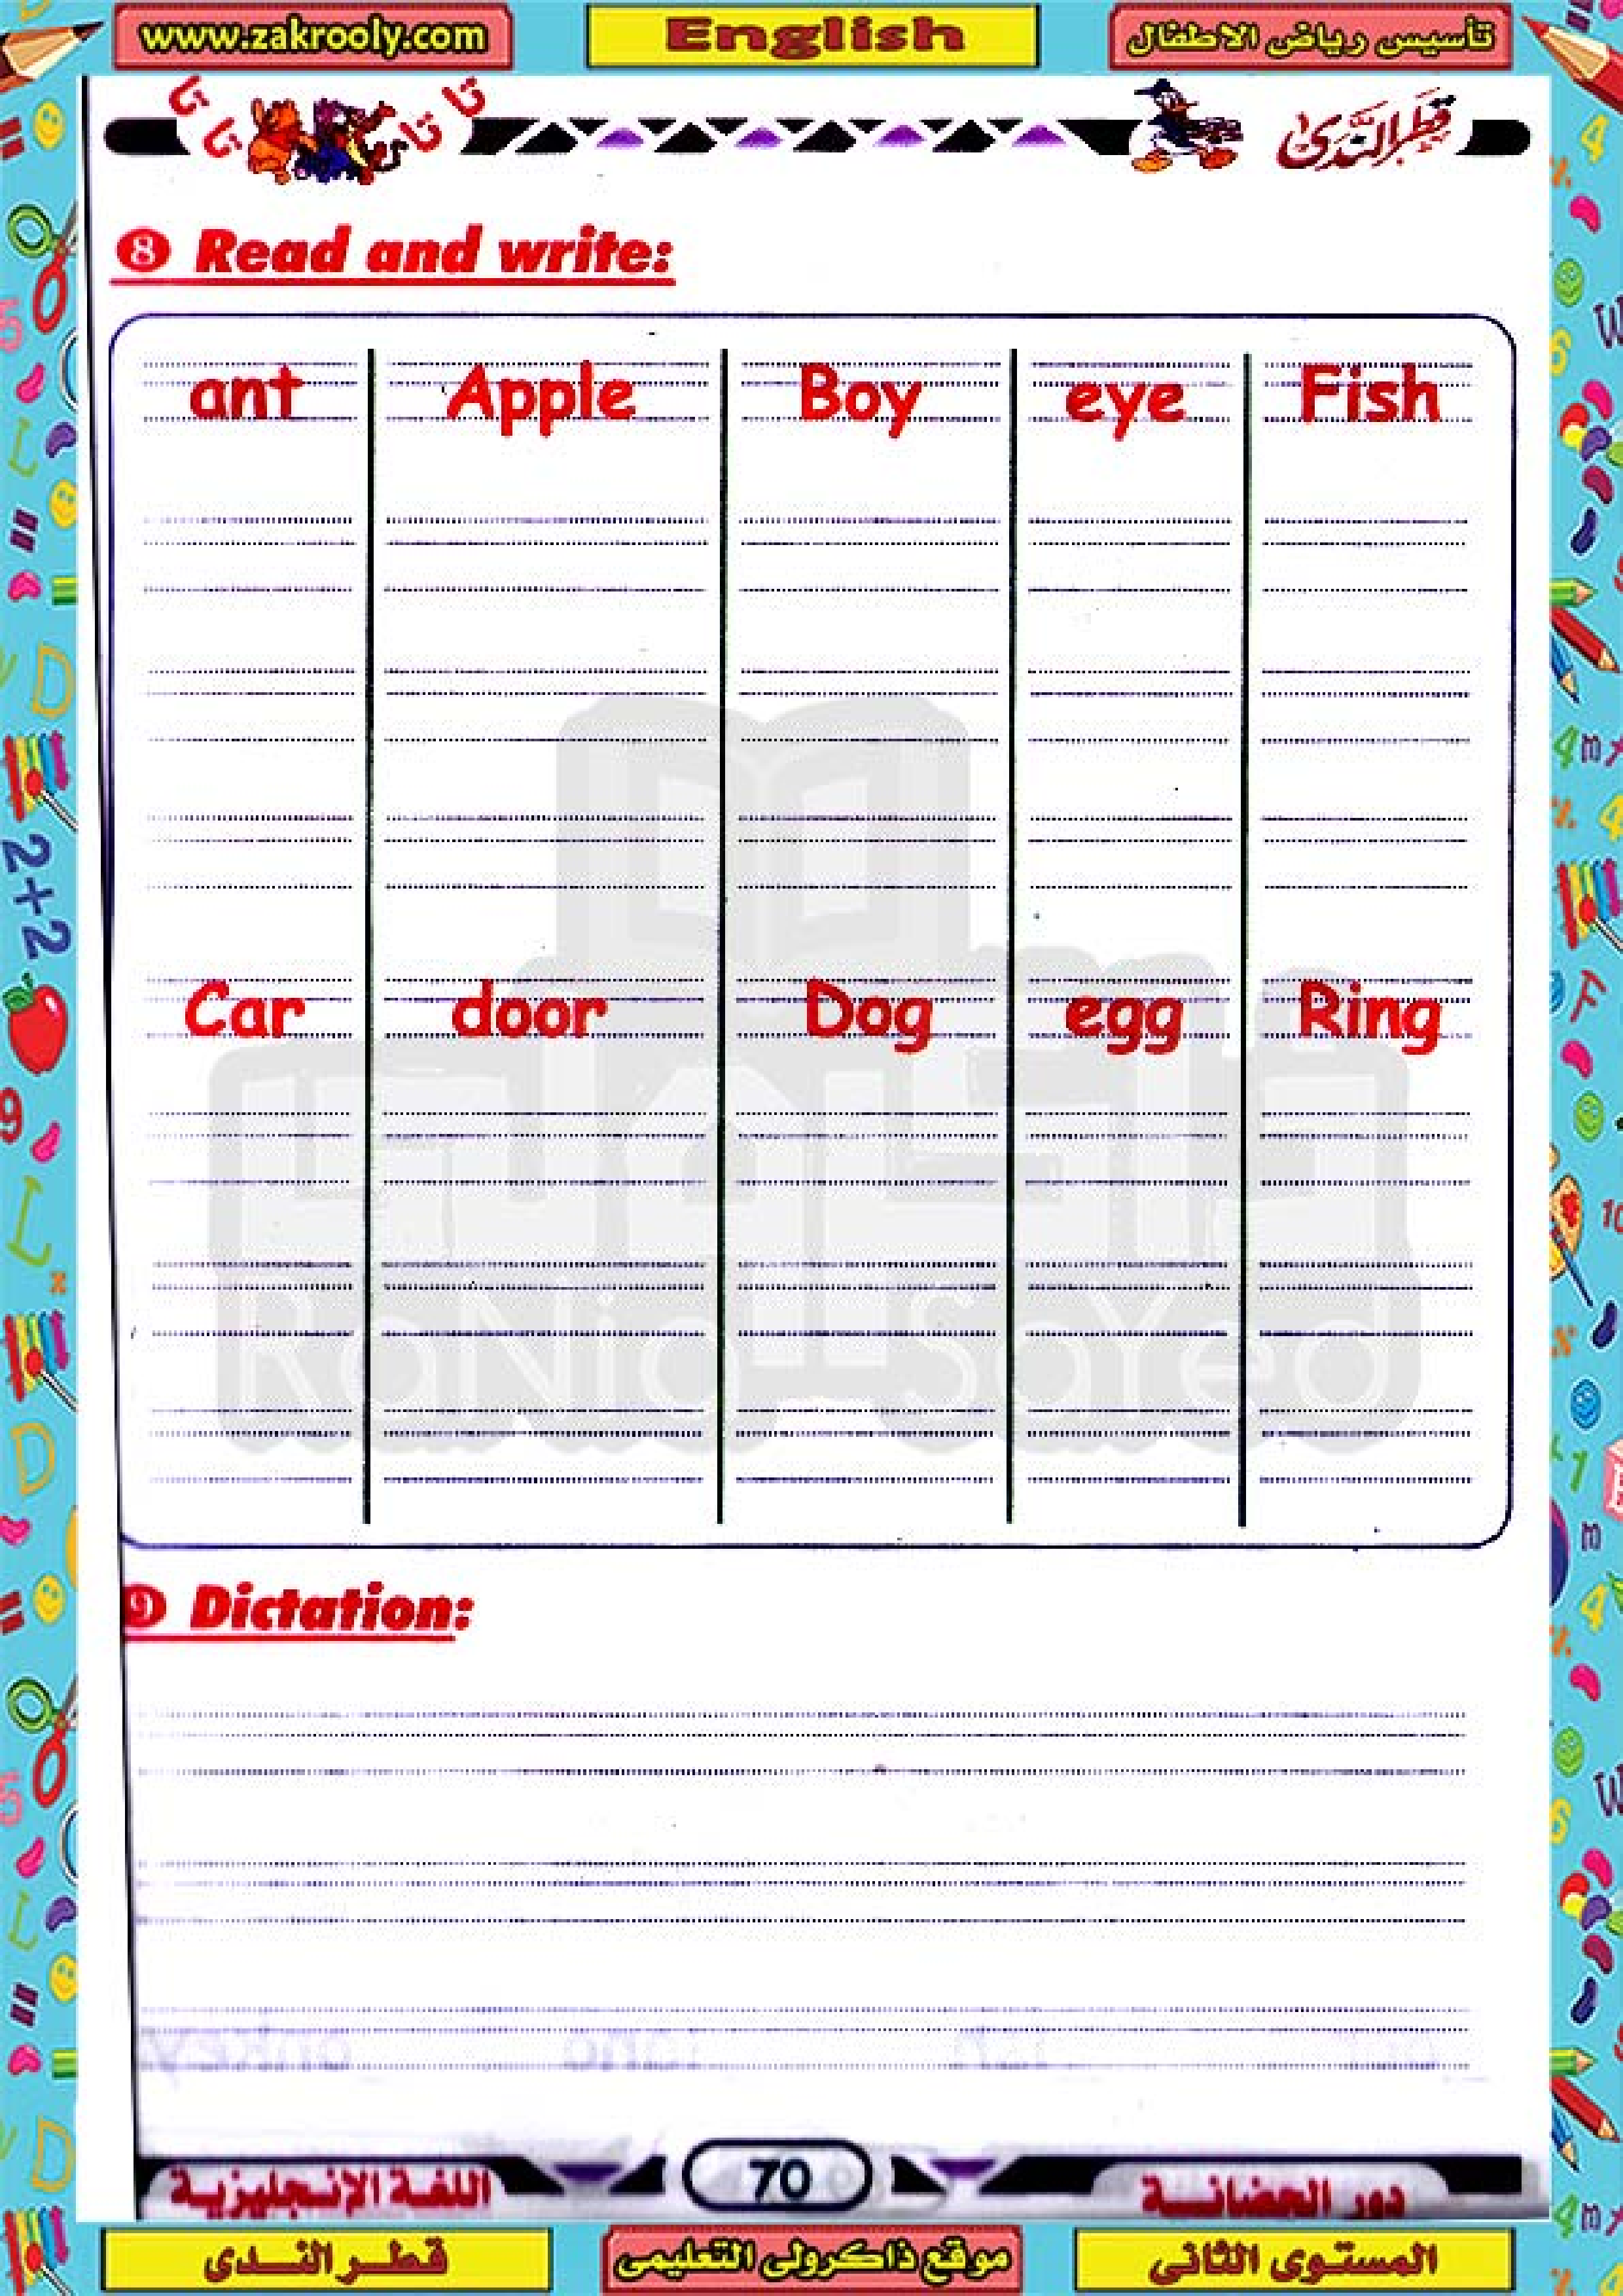 www.zakrooly.com English تأسيس رياض الاطفال
تا تا تا تا قطر الندى
8 Read and write:
ant Apple Boy eye Fish
Car door Dog egg Ring
RaNia SaYed
9 Dictation:
اللغة الإنجليزية 70 دور الحضانة
قطر الندى موقع ذاكرولى التعليمى المستوى الثانى